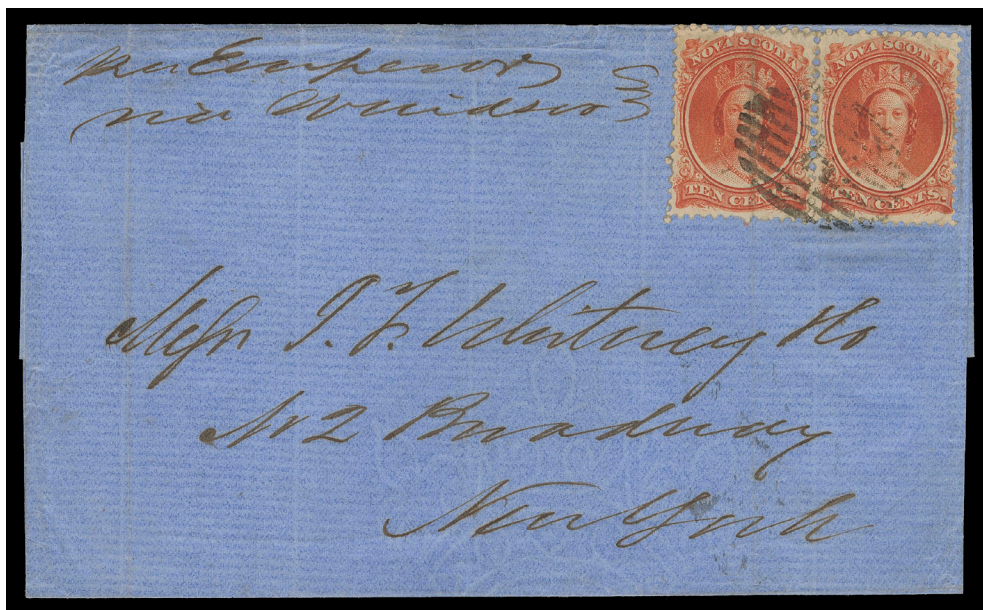 per Emperor
via Windsor
NOVA SCOTIA
TEN CENTS.
NOVA SCOTIA
TEN CENTS.
Messrs I. F. Whitney & Co
No 2 Broadway
New York